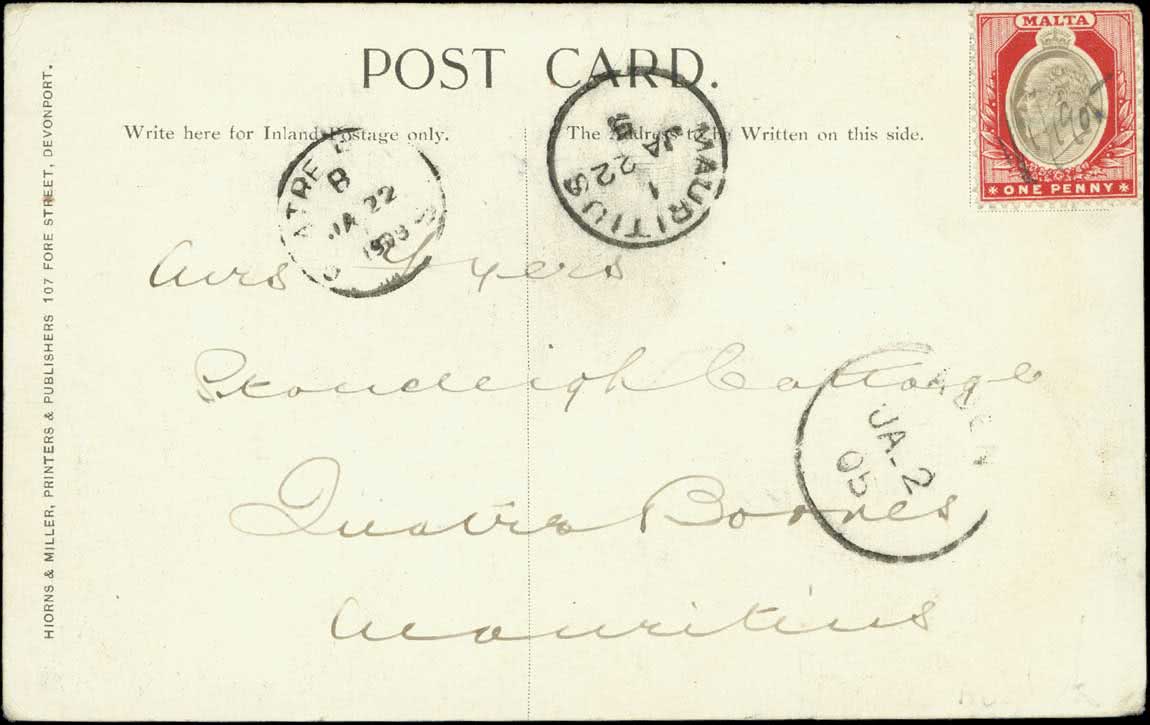 POST CARD.
Write here for Inland Postage only.
The Address to be Written on this side.
MALTA
ONE PENNY
MAURITIUS
1
JA 22
5
B
JA 22
JA-2
05
Mrs Myers
Stoneleigh Cottage
Quatre Bornes
Mauritius
HIORNS & MILLER, PRINTERS & PUBLISHERS 107 FORE STREET, DEVONPORT.